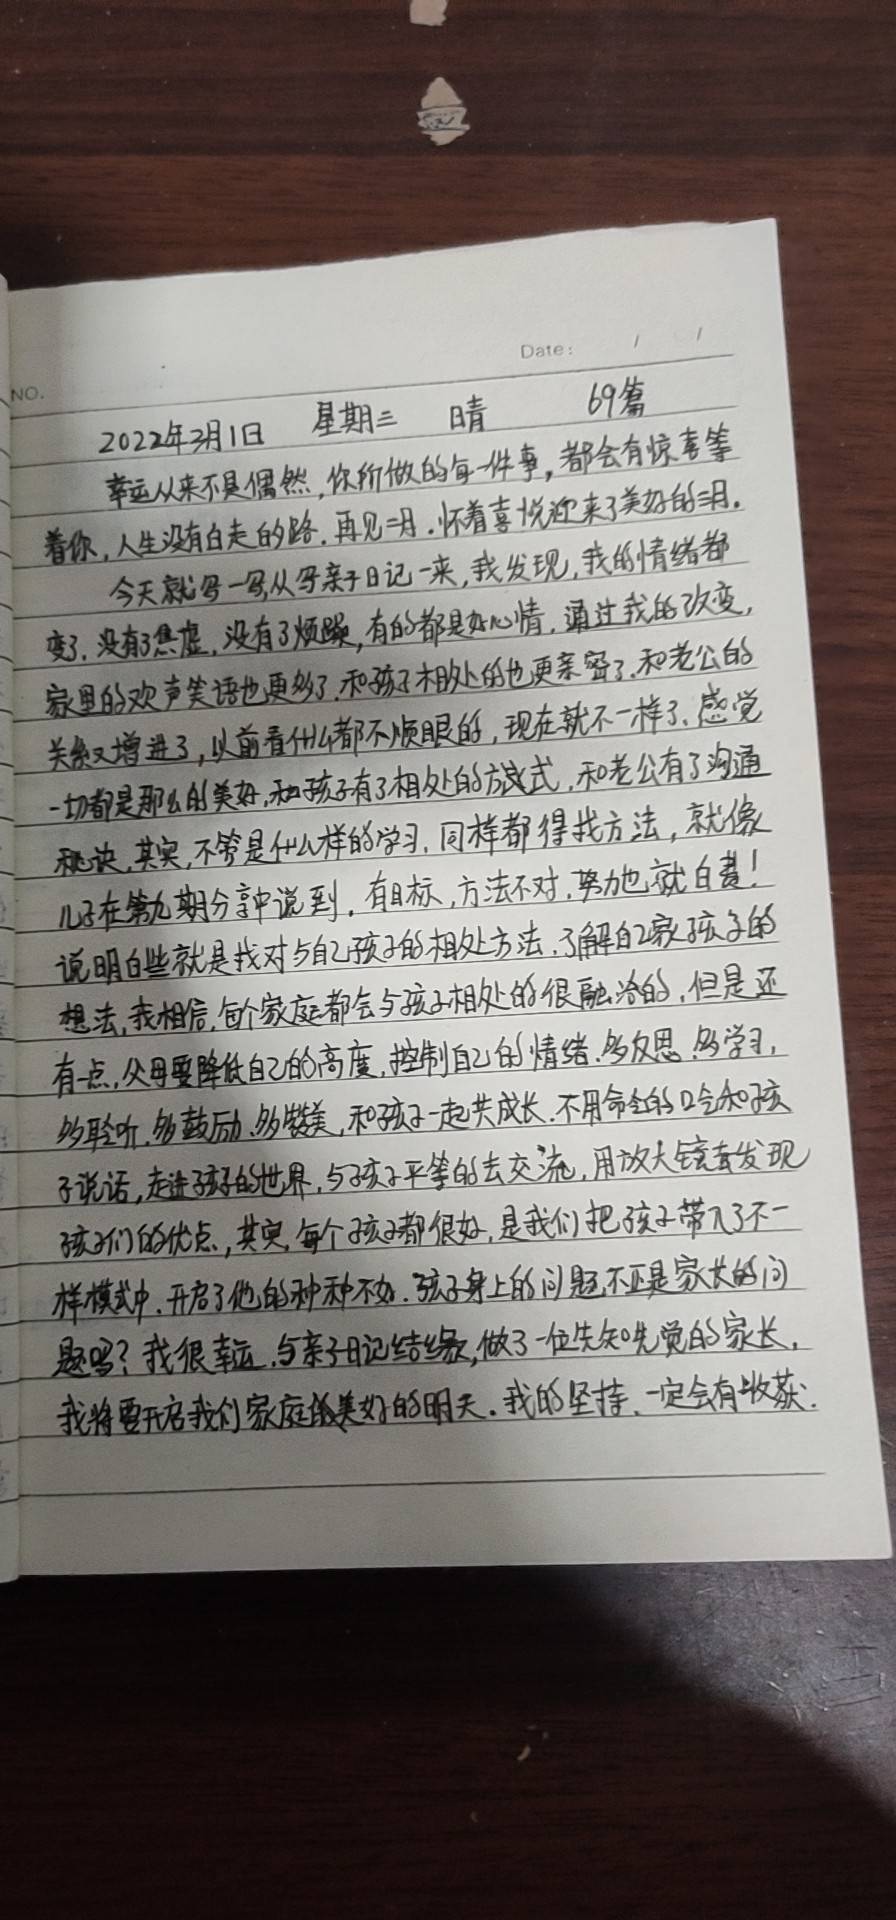 Date: / /
NO.
2022年3月1日 星期二 晴 69篇
幸运从来不是偶然,你所做的每一件事,都会有惊喜等
着你,人生没有白走的路.再见二月.怀着喜悦迎来了美好的三月.
今天就写一写从写亲子日记一来,我发现,我的情绪都
变了.没有了焦虑,没有了烦躁,有的都是好心情,通过我的改变,
家里的欢声笑语也更多了.和孩子相处的也更亲密了.和老公的
关系又增进了,以前看什么都不顺眼的,现在就不一样了、感觉
一切都是那么的美好,和孩子有了相处的方式,和老公有了沟通
秘诀,其实,不管是什么样的学习,同样都得找方法,就像
儿子在第九期分享中说到,有目标,方法不对,努力也就白费!
说明白些就是找对与自己孩子的相处方法.了解自己家孩子的
想法,我相信,每个家庭都会与孩子相处的很融洽的,但是还
有一点,父母要降低自己的高度,控制自己的情绪.多反思.多学习,
多聆听.多鼓励.多赞美,和孩子一起共成长.不用命令的口令和孩
子说话,走进孩子的世界,与孩子平等的去交流,用放大镜去发现
孩子们的优点,其实,每个孩子都很好,是我们把孩子带入了不一
样模式中.开启了他的种种不如.孩子身上的问题,不正是家长的问
题吗?我很幸运.与亲子日记结缘,做了一位先知先觉的家长,
我将要开启我们家庭的美好的明天.我的坚持、一定会有收获.